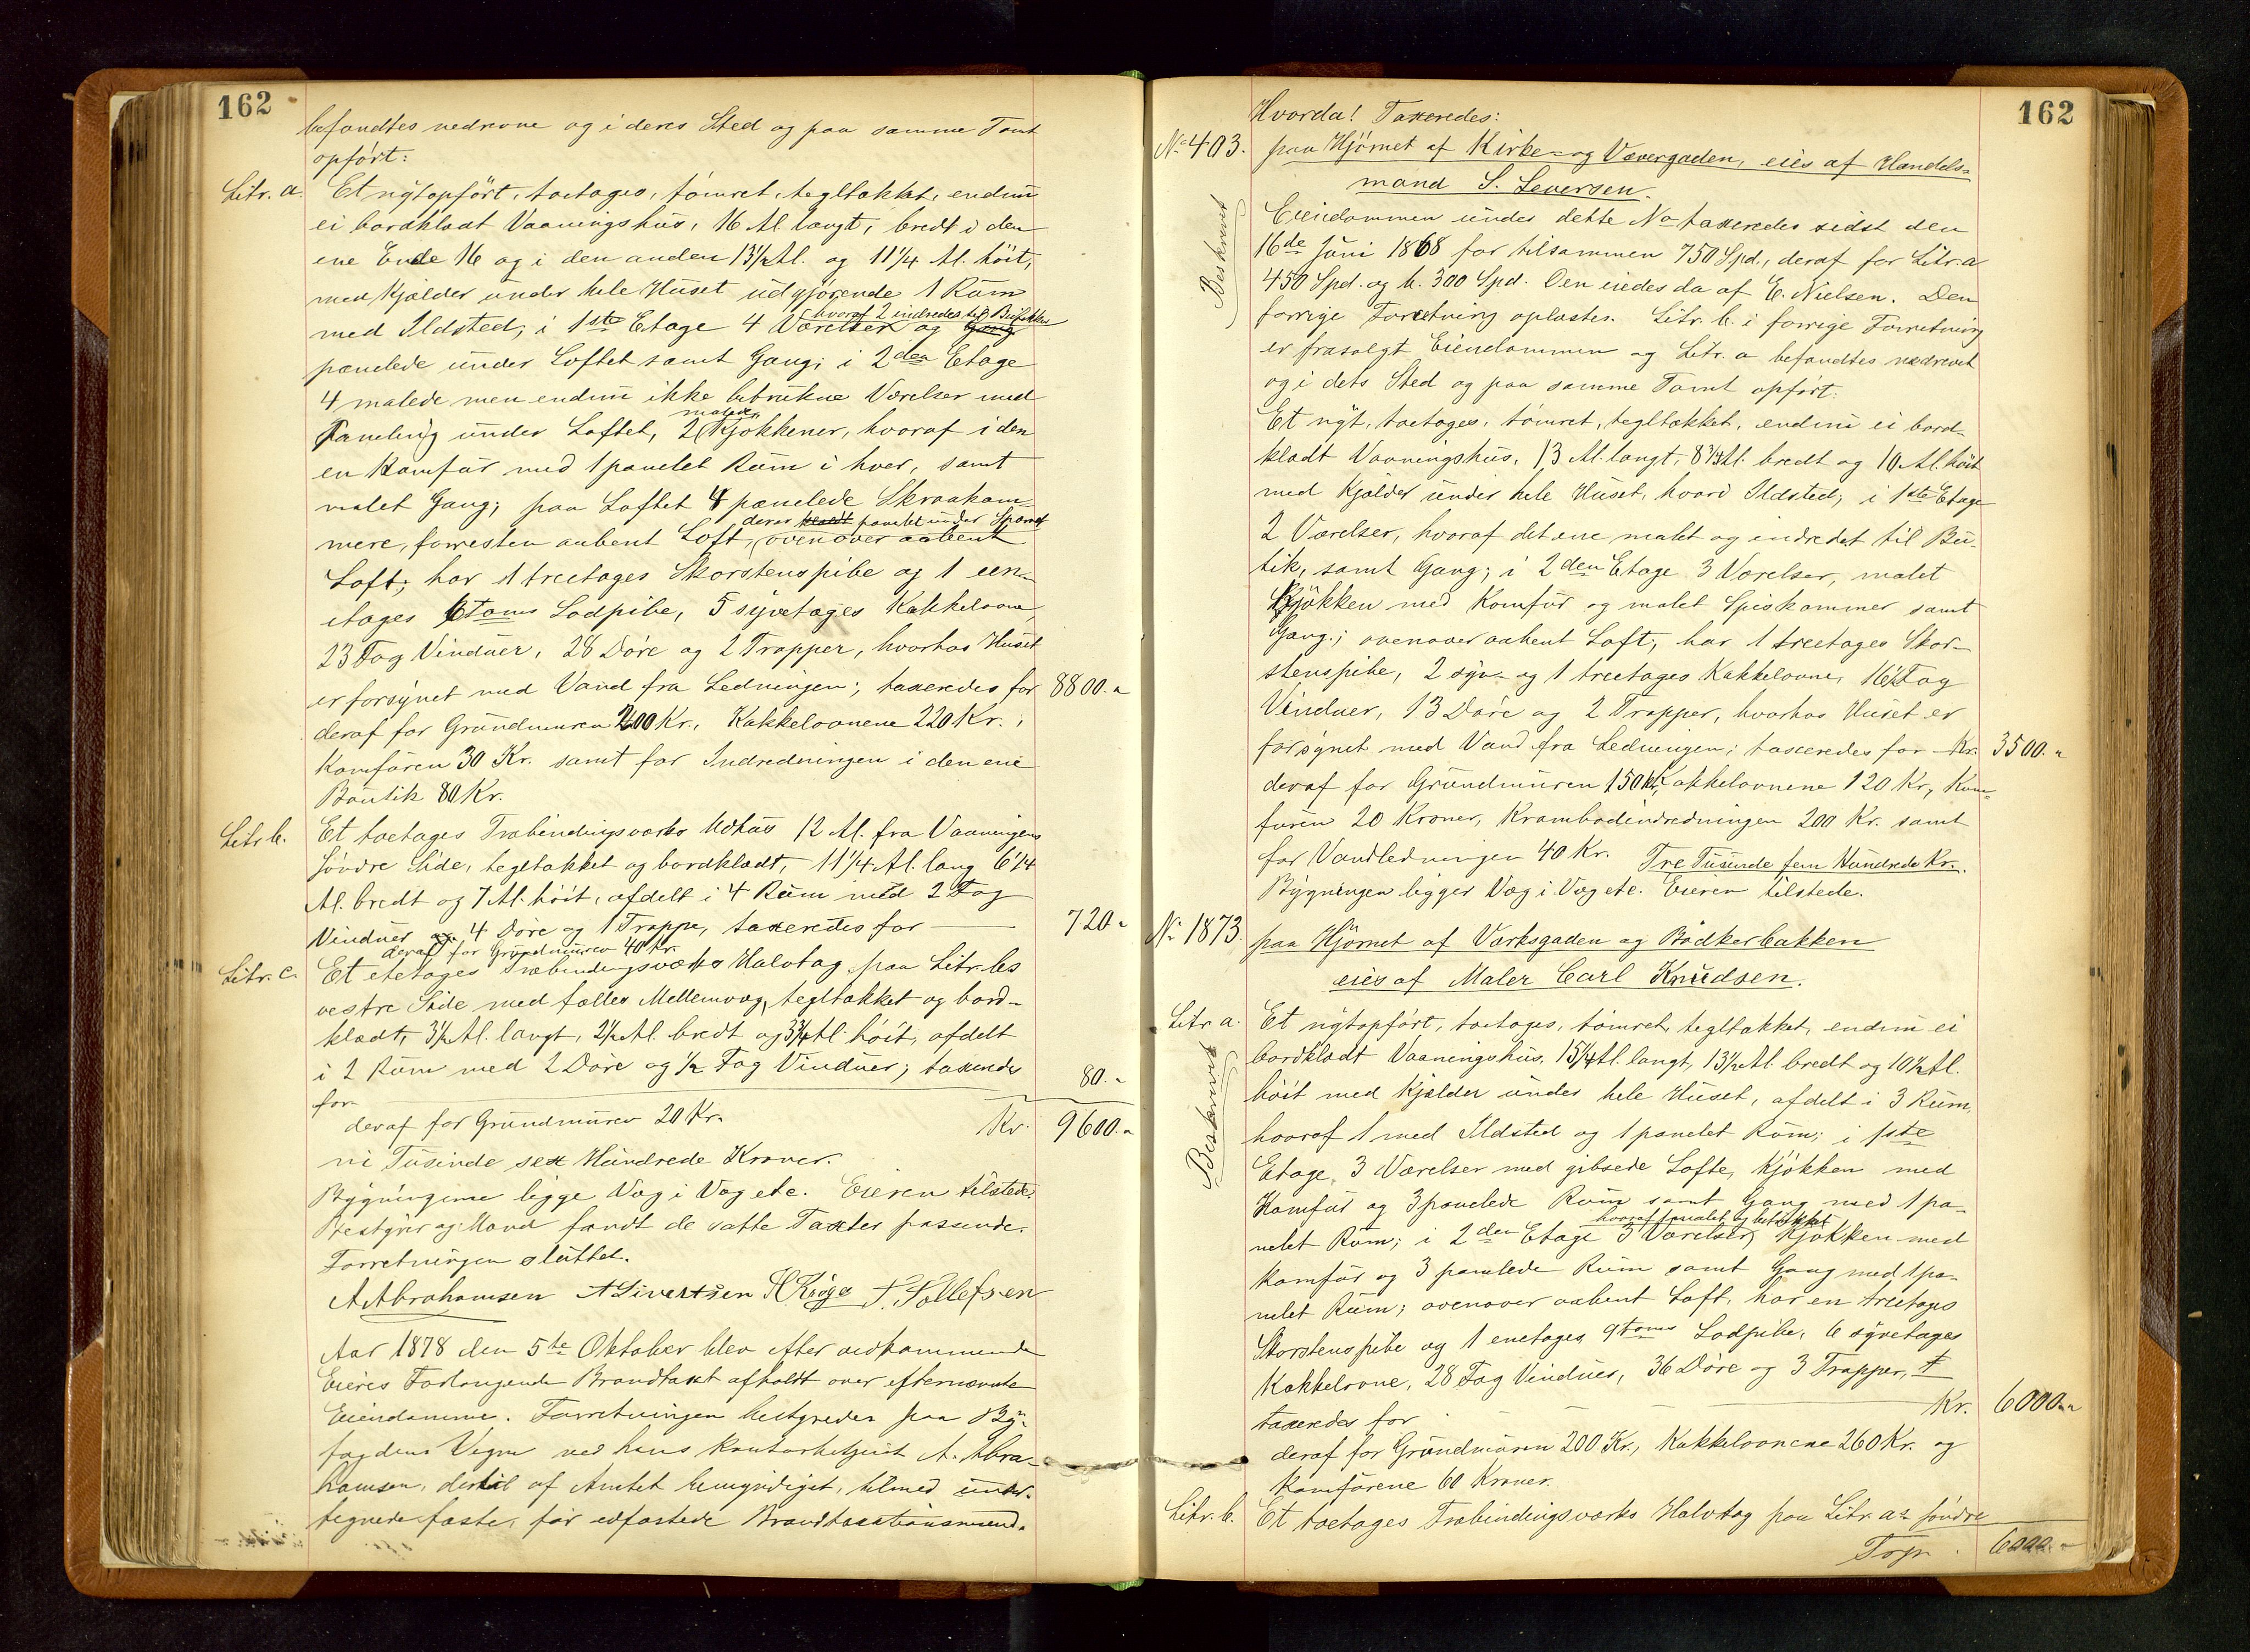 162
befandtes nedrevne og i deres Sted og paa samme Tomt
opført:
Litr. a. Et nytopført, toetages, tømret, tegltækket, endnu
ei bordklædt Vaaningshus, 16 Al. langt, bredt i den
ene Ende 16 og i den anden 13½ Al. og 11¼ Al. høit,
med Kjælder under hele Huset udgjørende 1 Rum
hvoraf 2 indredet til Butikker
med Ildsted; i 1ste Etage 4 Værelser og Gang
panelede under Loftet samt Gang; i 2den Etage
4 malede men endnu ikke betrukne Værelser med
malede
Paneling under Loftet, 2 Kjøkkener, hvoraf i den
en Komfur med 1 panelet Rum i hver, samt
malet Gang; paa Loftet 4 panelede Skraakam-
deraf panelet under Sparret
mere, forresten aabent Loft, ovenover aabent
Loft; har 1 treetages Skorstenspibe og 1 een-
etages 6toms Lodpibe, 5 syvetages Kakkelovne,
23 Fag Vinduer, 28 Døre og 2 Trapper, hvorhos Huset
er forsynet med Vand fra Ledningen; taxeredes for 8800.-
deraf for Grundmuren 200 Kr., Kakkelovnene 220 Kr.,
Komfuren 30 Kr. samt for Indredningen i den ene
Boutik 80 Kr.
Litr. b. Et toetages Træbindingsværks Udhus 12 Al. fra Vaaningens
søndre Side, tegltækket og bordklædt, 11¼ Al. lang 6¼
Al. bredt og 7 Al. høit, afdelt i 4 Rum med 2 Fag
Vinduer 4 Døre og 1 Trappe, taxeredes for 720.-
deraf for Grundmuren 40 Kr.
Litr. c. Et etetages Træbindingsværks Halvtag paa Litr. bs
vestre Side med fælles Mellemvæg, tegltækket og bord-
klædt, 3½ Al. langt, 2½ Al. bredt og 3¾ Al. høit, afdelt
i 2 Rum med 2 Døre og ½ Fag Vinduer; taxeredes
for 80.-
deraf for Grundmuren 20 Kr. Kr. 9600.-
ni Tusinde sex Hundrede Kroner.
Bygningerne ligge Væg i Væg etc. Eieren tilstede.
Bestyrer og Mænd fandt de satte Taxter passende.
Forretningen sluttet.
A Abrahamsen A Sivertsen H Krøge T. Tollefsen
Aar 1878 den 5te Oktober blev efter vedkommende
Eieres Forlangende Brandtaxt afholdt over efternævnte
Eiendomme. Forretningen bestyredes paa By-
fogdens Vegne ved hans Kontorbetjent A. Abra-
hamsen, dertil af Amtet bemyndiget, tilmed under-
tegnede faste, før edfæstede Brandtaxationsmænd.
162
Hvorda! Taxeredes:
No 403. paa Hjørnet af Kirke- og Vævergaden, eies af Handels-
mand S. Seversen.
Beskrevet
Eiendommen under dette No taxeredes sidst den
16de Juni 1868 for tilsammen 750 Spd., deraf for Litr. a
450 Spd. og b. 300 Spd. Den eiedes da af E. Nielsen. Den
forrige Forretning oplæstes. Litr. b. i forrige Forretning
er frasolgt Eiendommen og Litr. a befandtes nedrevet
og i dets Sted og paa samme Tomt opført:
Et nyt, toetages, tømret, tegltækket, endnu ei bord-
klædt Vaaningshus, 13 Al. langt, 8¾ Al. bredt og 10 Al. høit
med Kjælder under hele Huset, hvori Ildsted; i 1ste Etage
2 Værelser, hvoraf det ene malet og indredet til Bu-
tik, samt Gang; i 2den Etage 3 Værelser, malet
Kjøkken med Komfur og malet Spiskammer samt
Gang; ovenover aabent Loft; har 1 treetages Skor-
stenspibe, 2 syv- og 1 treetages Kakkelovne, 16½ Fag
Vinduer, 13 Døre og 2 Trapper, hvorhos Huset er
forsynet med Vand fra Ledningen; taxeredes for Kr. 3500.-
deraf for Grundmuren 150 Kr, Kakkelovnene 120 Kr, Kom-
furen 20 Kroner, Krambodindredningen 200 Kr. samt
for Vandledningen 40 Kr. Tre Tusinde fem Hundrede Kr.
Bygningen ligger Væg i Væg etc. Eieren tilstede.
No 1873. paa Hjørnet af Værksgaden og Bødkerbakken
eies af Maler Carl Knudsen.
Litr. a. Et nytopført, toetages, tømret, tegltækket, endnu ei
Beskrevet
bordklædt Vaaningshus, 15¼ Al. langt, 13½ Al. bredt og 10½ Al.
høit med Kjælder under hele Huset, afdelt i 3 Rum,
hvoraf 1 med Ildsted og 1 panelet Rum; i 1ste
Etage 3 Værelser med gibsede Lofte, Kjøkken med
Komfur og 3 panelede Rum samt Gang med 1 pa-
hvoraf 1 malet og betrukket
nelet Rum; i 2den Etage 3 Værelser, Kjøkken med
Komfur og 3 panelede Rum samt Gang med 1 pa-
nelet Rum; ovenover aabent Loft, har en treetages
Skorstenspibe og 1 enetages 9toms Lodpibe, 6 syvetages
Kakkelovne, 28 Fag Vinduer, 36 Døre og 3 Trapper,
taxeredes for Kr. 6000.-
deraf for Grundmuren 200 Kr., Kakkelovnene 260 Kr. og
Komfurene 60 Kroner.
Litr. b. Et toetages Træbindingsværks Halvtag paa Litr. as søndre
Tr. 6000.-